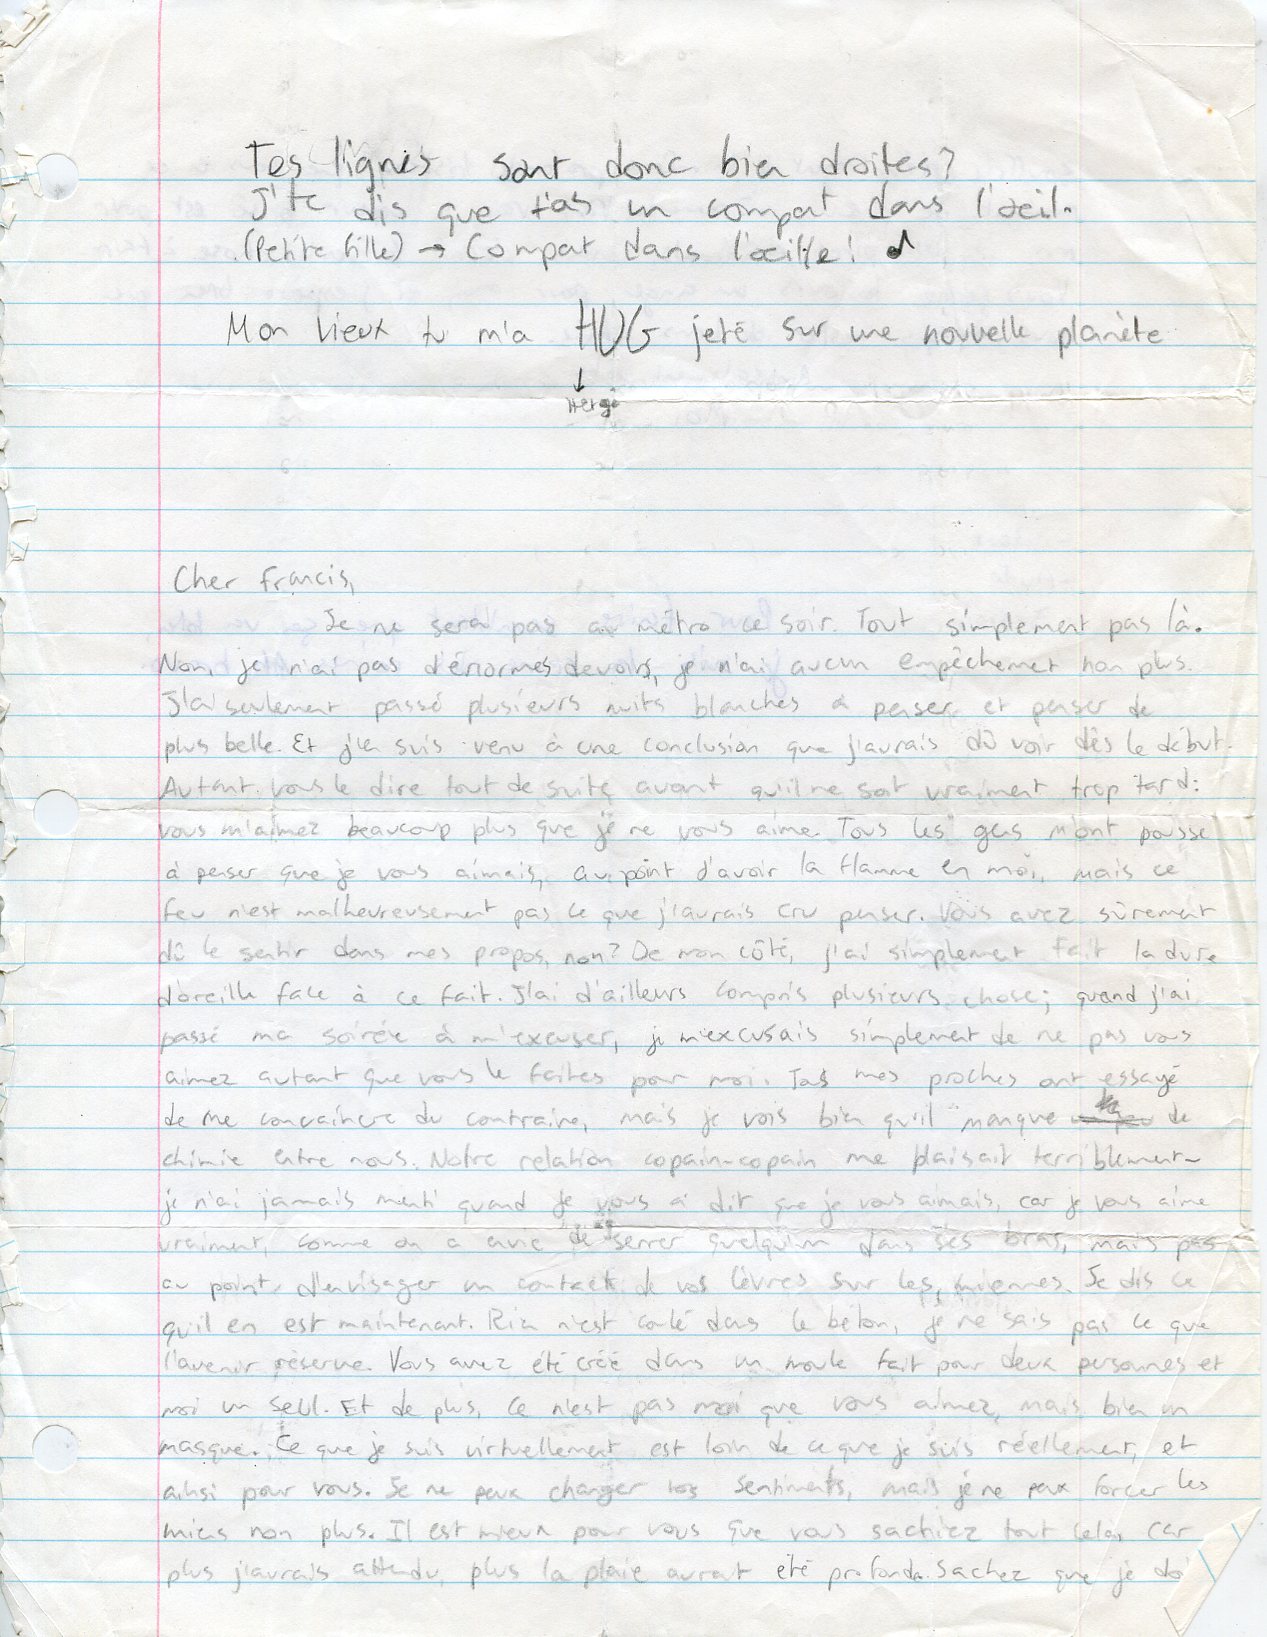 Tes lignes sont donc bien droites?
J'te dis que t'as un compat dans l'oeil.
(Petite fille) → Compat dans l'oeille! ♪
Mon vieux tu m'a HUG jeté sur une nouvelle planète
↓
Cher Francis,
Je ne serai pas au métro ce soir. Tout simplement pas là.
Non, je n'ai pas d'énormes devoirs, je n'ai aucun empêchement non plus.
J'ai seulement passé plusieurs nuits blanches à penser et penser de
plus belle. Et j'en suis venu à une conclusion que j'aurais dû voir dès le début.
Autant vous le dire tout de suite, avant qu'il ne soit vraiment trop tard:
vous m'aimez beaucoup plus que je ne vous aime. Tous les gens m'ont poussé
à penser que je vous aimais, au point d'avoir la flamme en moi, mais ce
feu n'est malheureusement pas ce que j'aurais cru penser. Vous avez sûrement
dû le sentir dans mes propos, non? De mon côté, j'ai simplement fait la dure
d'oreille face à ce fait. J'ai d'ailleurs compris plusieurs chose; quand j'ai
passé ma soirée à m'excuser, je m'excusais simplement de ne pas vous
aimez autant que vous le faites pour moi. Tous mes proches ont essayé
de me convaincre du contraire, mais je vois bien qu'il manque de
chimie entre nous. Notre relation copain-copain me plaisait terriblement-
je n'ai jamais menti quand je vous ai dit que je vous aimais, car je vous aime
vraiment, comme on a envie de serrer quelqu'un dans ses bras, mais pas
au point d'envisager un contact de vos lèvres sur les miennes. Je dis ce
qu'il en est maintenant. Rien n'est coulé dans le béton, je ne sais pas ce que
l'avenir réserve. Vous avez été créé dans un moule fait pour deux personnes et
moi un seul. Et de plus, ce n'est pas moi que vous aimez, mais bien un
masque. Ce que je suis virtuellement est loin de ce que je suis réellement, et
ainsi pour vous. Je ne peux changer vos sentiments, mais je ne peux forcer les
miens non plus. Il est mieux pour vous que vous sachiez tout cela, car
plus j'aurais attendu, plus la plaie aurait été profonde. Sachez que je